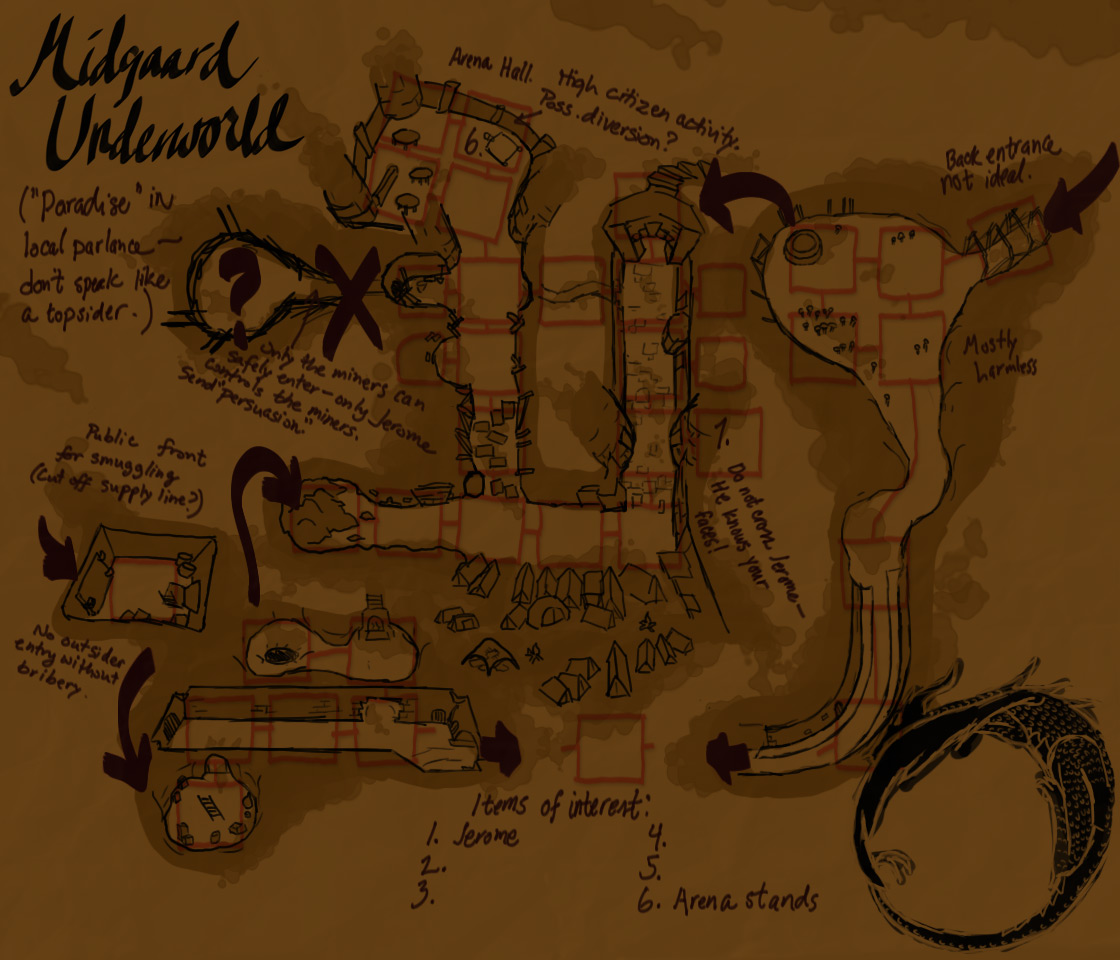 Midgaard
Underworld
("Paradise" in
local parlance —
don't speek like
a topsider.)
Arena Hall. High citizen activity.
Poss. diversion?
6.
Back entrance
not ideal.
Mostly
harmless
?
X
Only the miners can
safely enter — only Jerome
controls the miners.
Send "persuasion."
Public front
for smuggling
(Cut off supply line?)
1.
Do not cross Jerome —
He knows your
faces!
No outsider
entry without
bribery.
Items of interest:
1. Jerome
2.
3.
4.
5.
6. Arena stands